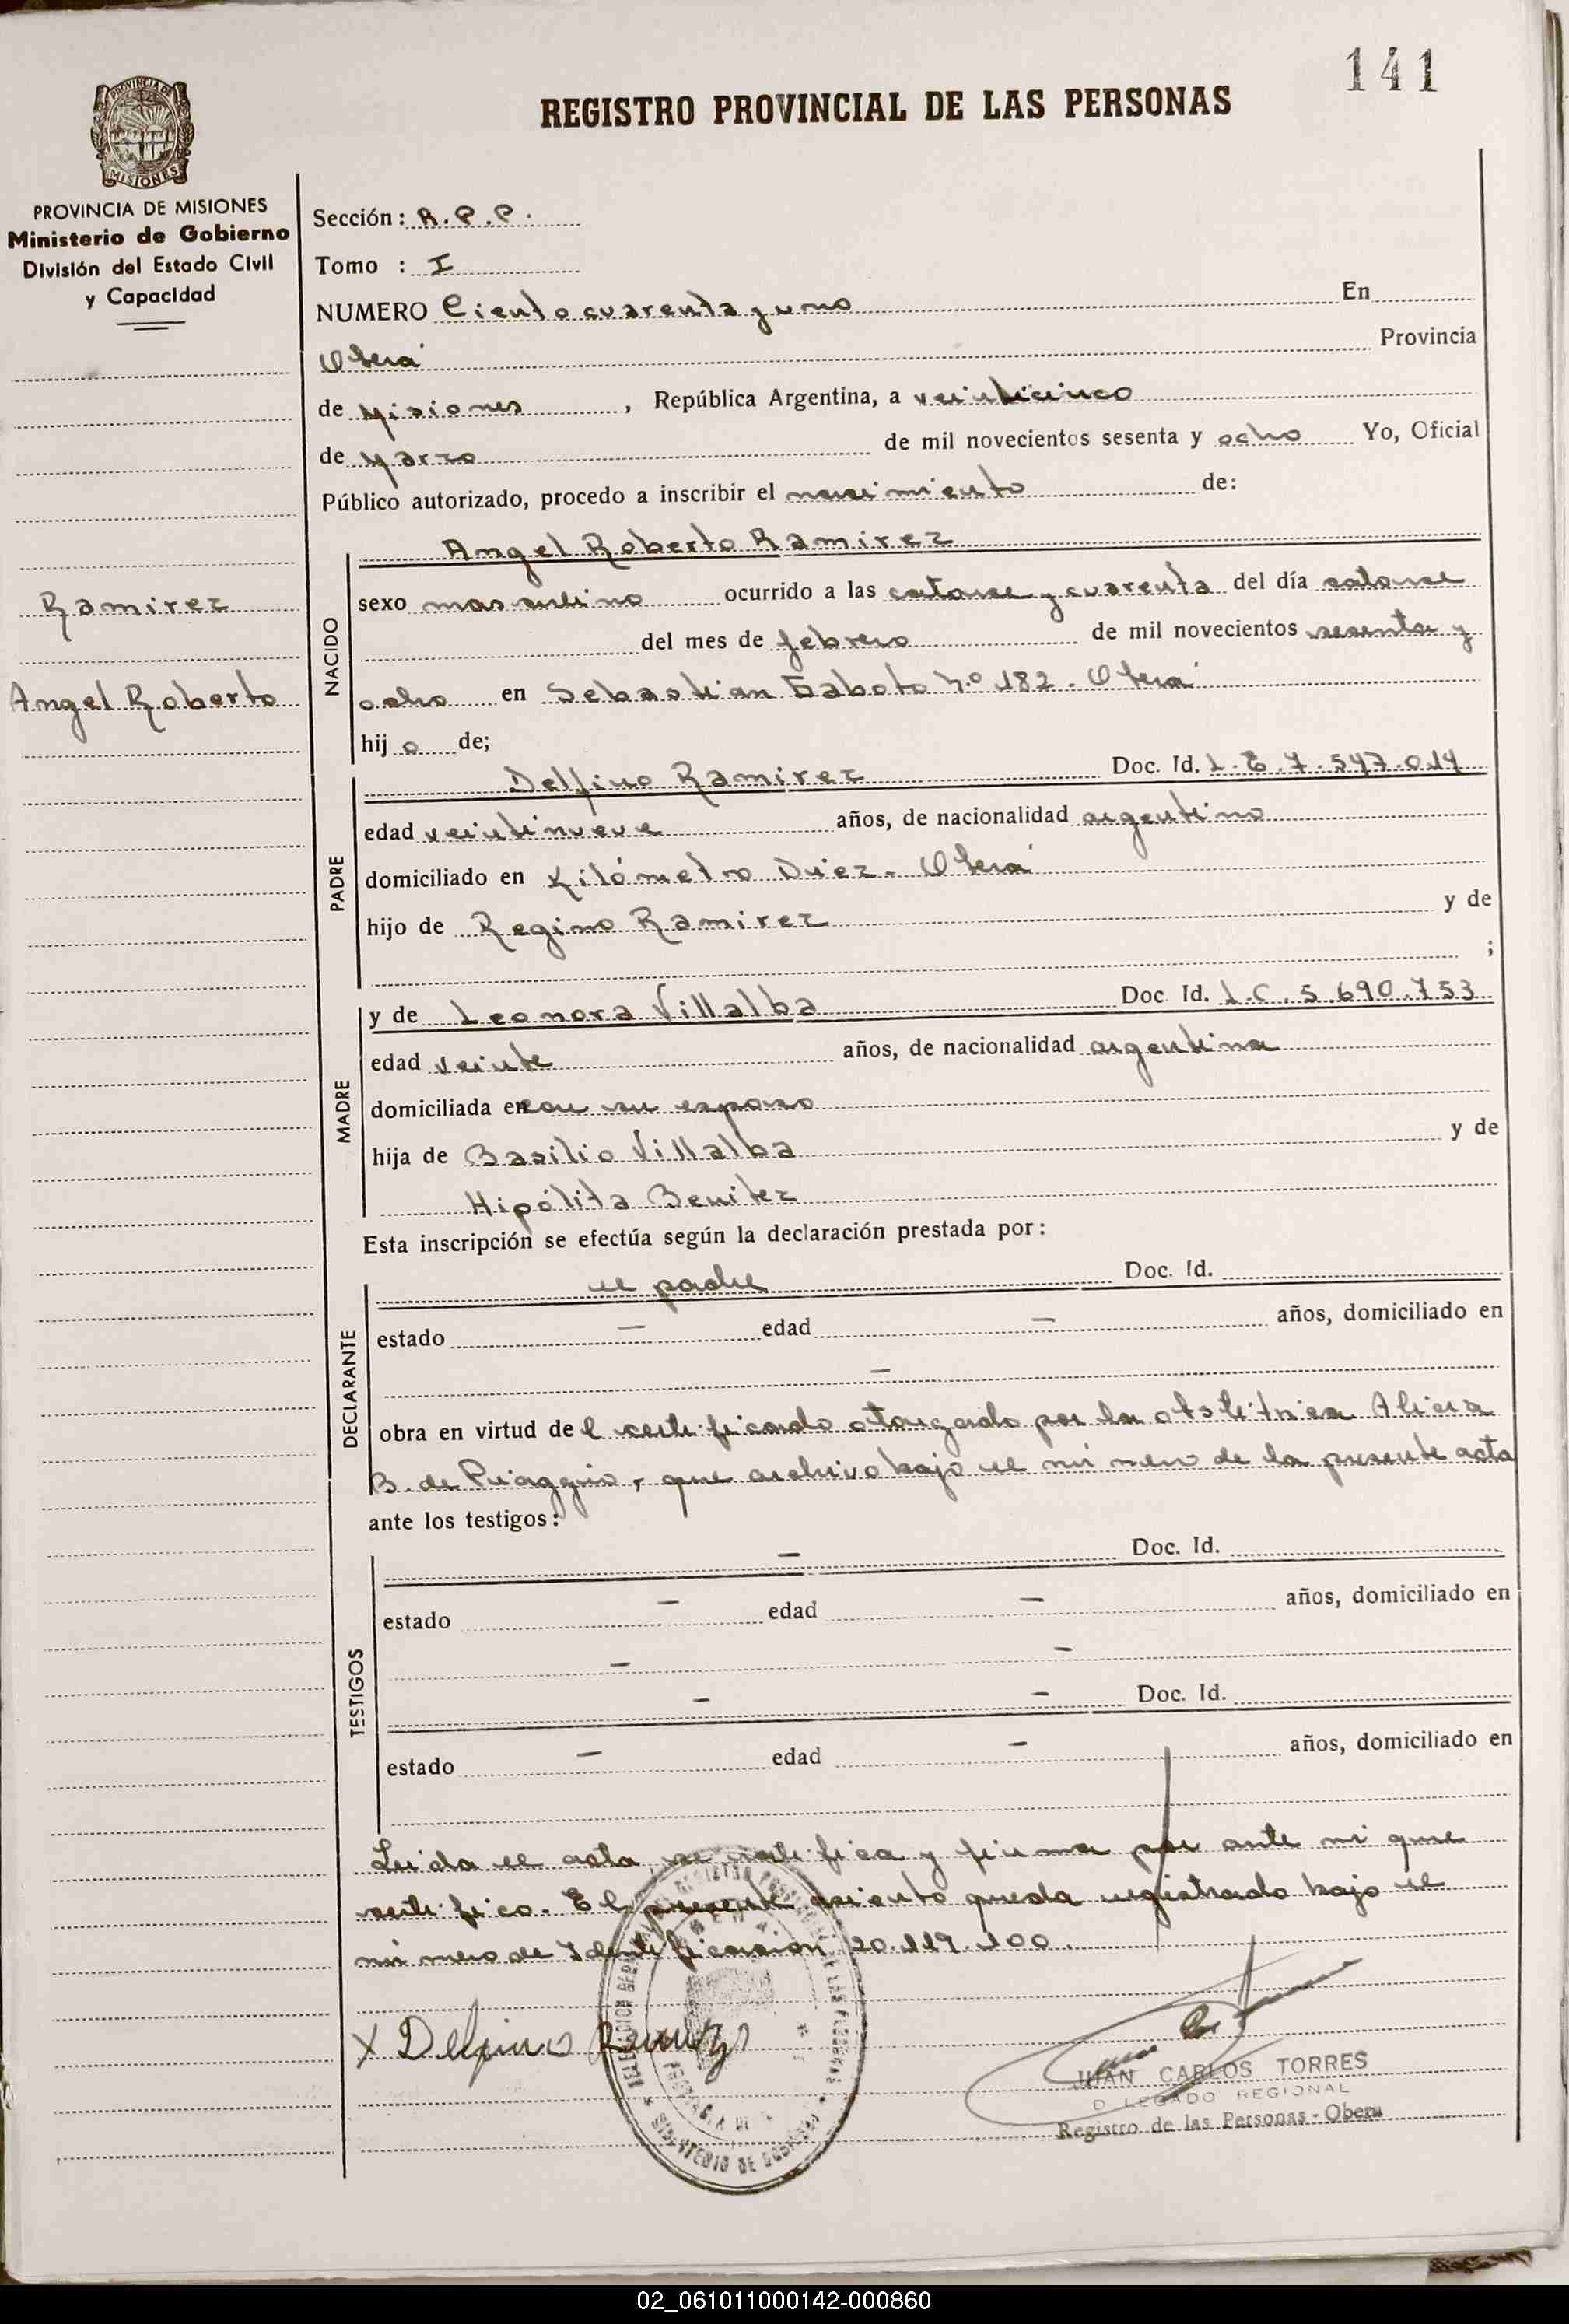 141
REGISTRO PROVINCIAL DE LAS PERSONAS
PROVINCIA DE MISIONES
Ministerio de Gobierno
División del Estado Civil
y Capacidad
Sección: R.P.P.
Tomo : I
NUMERO Ciento cuarenta y uno En
Oberá Provincia
de Misiones , República Argentina, a veinticinco
de Marzo de mil novecientos sesenta y ocho Yo, Oficial
Público autorizado, procedo a inscribir el nacimiento de:
Ramirez
Angel Roberto
NACIDO
Angel Roberto Ramirez
sexo masculino ocurrido a las catorce y cuarenta del día catorce
del mes de febrero de mil novecientos sesenta y
ocho en Sebastian Gaboto N.º 182 - Oberá
hij o de;
PADRE
Delfino Ramirez Doc. Id. L.E. 7.547.014
edad veintinueve años, de nacionalidad argentino
domiciliado en Kilómetro Diez - Oberá
hijo de Regino Ramirez y de
;
MADRE
y de Leonora Villalba Doc. Id. L.C. 5.690.753
edad veinte años, de nacionalidad argentina
domiciliada en con su esposo
hija de Basilio Villalba y de
Hipólita Benitez
Esta inscripción se efectúa según la declaración prestada por:
DECLARANTE
el padre Doc. Id.
estado — edad — años, domiciliado en
—
obra en virtud de l certificado otorgado por la obstétrica Alicia
B. de Piaggio, que archivo bajo el número de la presente acta
ante los testigos:
TESTIGOS
— Doc. Id.
estado — edad — años, domiciliado en
— —
— — Doc. Id.
estado — edad — años, domiciliado en
Leída el acta, se ratifica y firma por ante mi que
certifico. El presente asiento queda registrado bajo el
número de Identificación 20.119.100.
X Delfino Ramirez
JUAN CARLOS TORRES
D LEGADO REGIONAL
Registro de las Personas - Obera
02_061011000142-000860